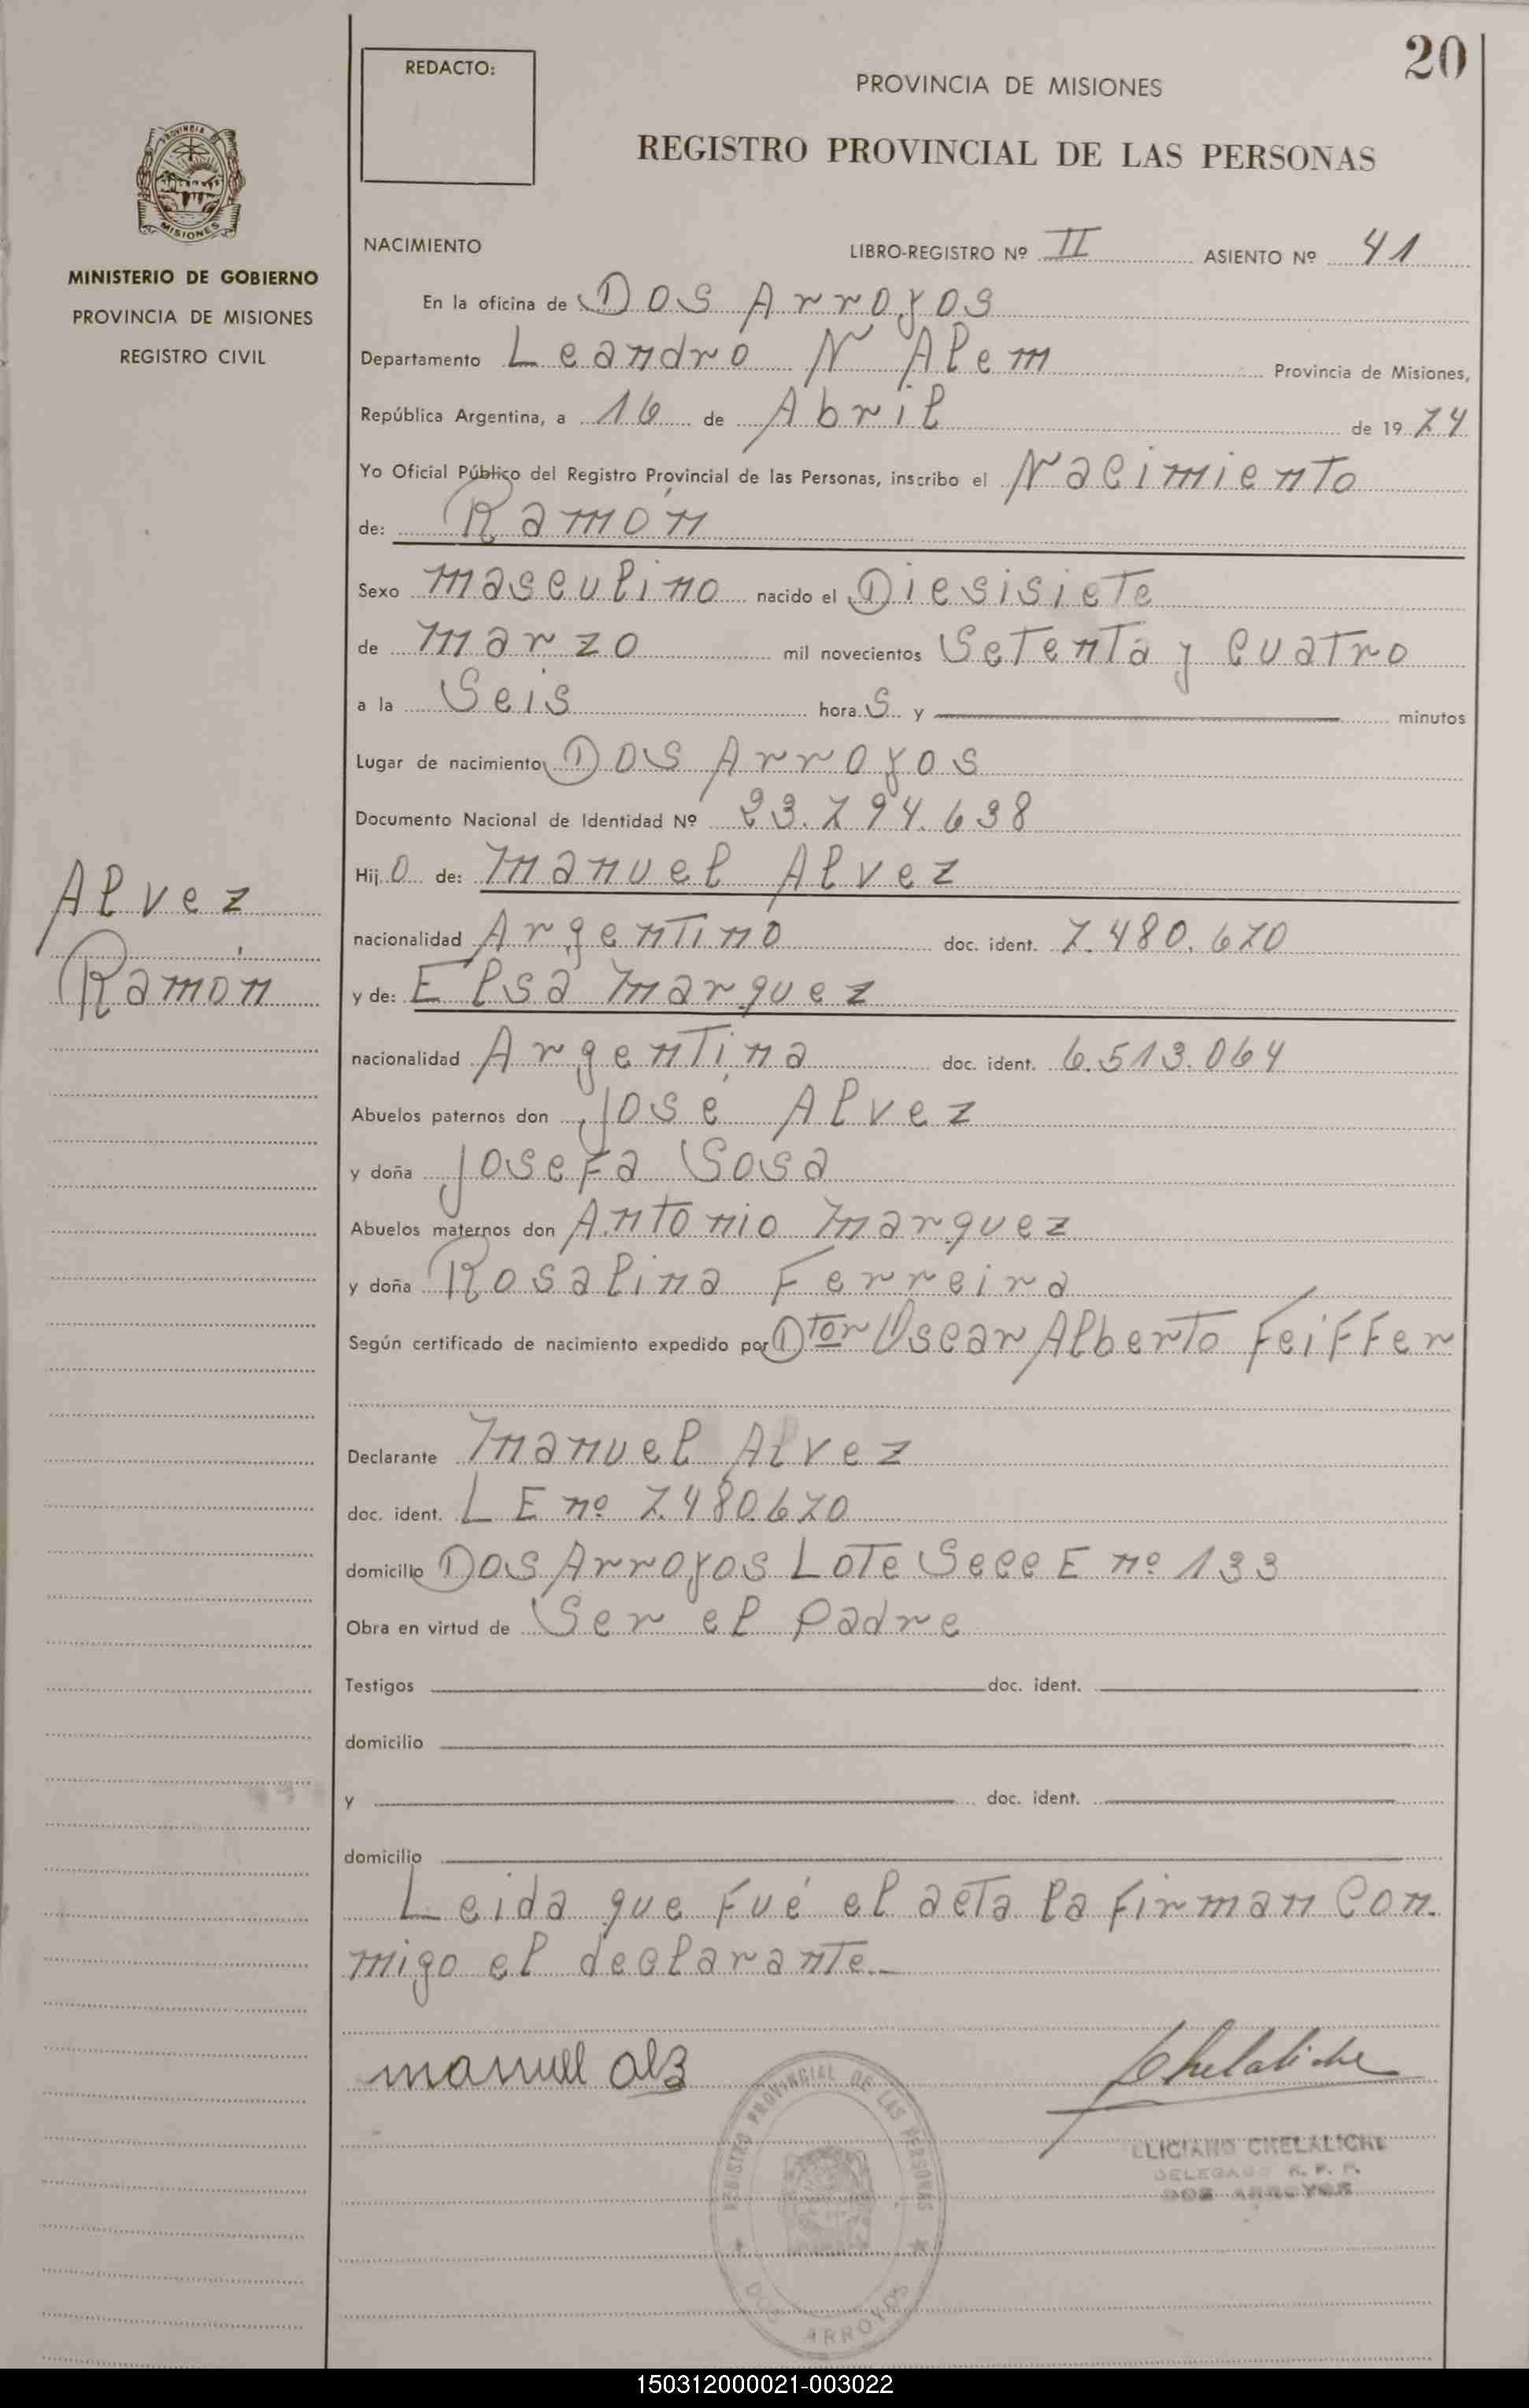 20
REDACTO:
PROVINCIA DE MISIONES
REGISTRO PROVINCIAL DE LAS PERSONAS
PROVINCIA
MISIONES
MINISTERIO DE GOBIERNO
PROVINCIA DE MISIONES
REGISTRO CIVIL
Alvez
Ramón
NACIMIENTO LIBRO-REGISTRO Nº II ASIENTO Nº 41
En la oficina de Dos Arroyos
Departamento Leandro N Alem Provincia de Misiones,
República Argentina, a 16 de Abril de 1974
Yo Oficial Público del Registro Provincial de las Personas, inscribo el Nacimiento
de: Ramón
Sexo Masculino nacido el Diesisiete
de Marzo mil novecientos Setenta y Cuatro
a la Seis horas y minutos
Lugar de nacimiento Dos Arroyos
Documento Nacional de Identidad Nº 23.794.638
Hijo de: Manuel Alvez
nacionalidad Argentino doc. ident. 7.480.670
y de: Elsa Marquez
nacionalidad Argentina doc. ident. 6.513.064
Abuelos paternos don José Alvez
y doña Josefa Sosa
Abuelos maternos don Antonio Marquez
y doña Rosalina Ferreira
Según certificado de nacimiento expedido por Dtor Oscar Alberto Feiffer
Declarante Manuel Alvez
doc. ident. L E nº 7.480.670
domicilio Dos Arroyos Lote Secc E nº 133
Obra en virtud de Ser el padre
Testigos doc. ident.
domicilio
y doc. ident.
domicilio
Leida que fué el acta la firman con
migo el declarante.-
manuel alz
Chelaliche
REGISTRO PROVINCIAL DE LAS PERSONAS
DOS ARROYOS
ELICIANO CHELALICHE
DELEGADO R. P. P.
DOS ARROYOS
150312000021-003022